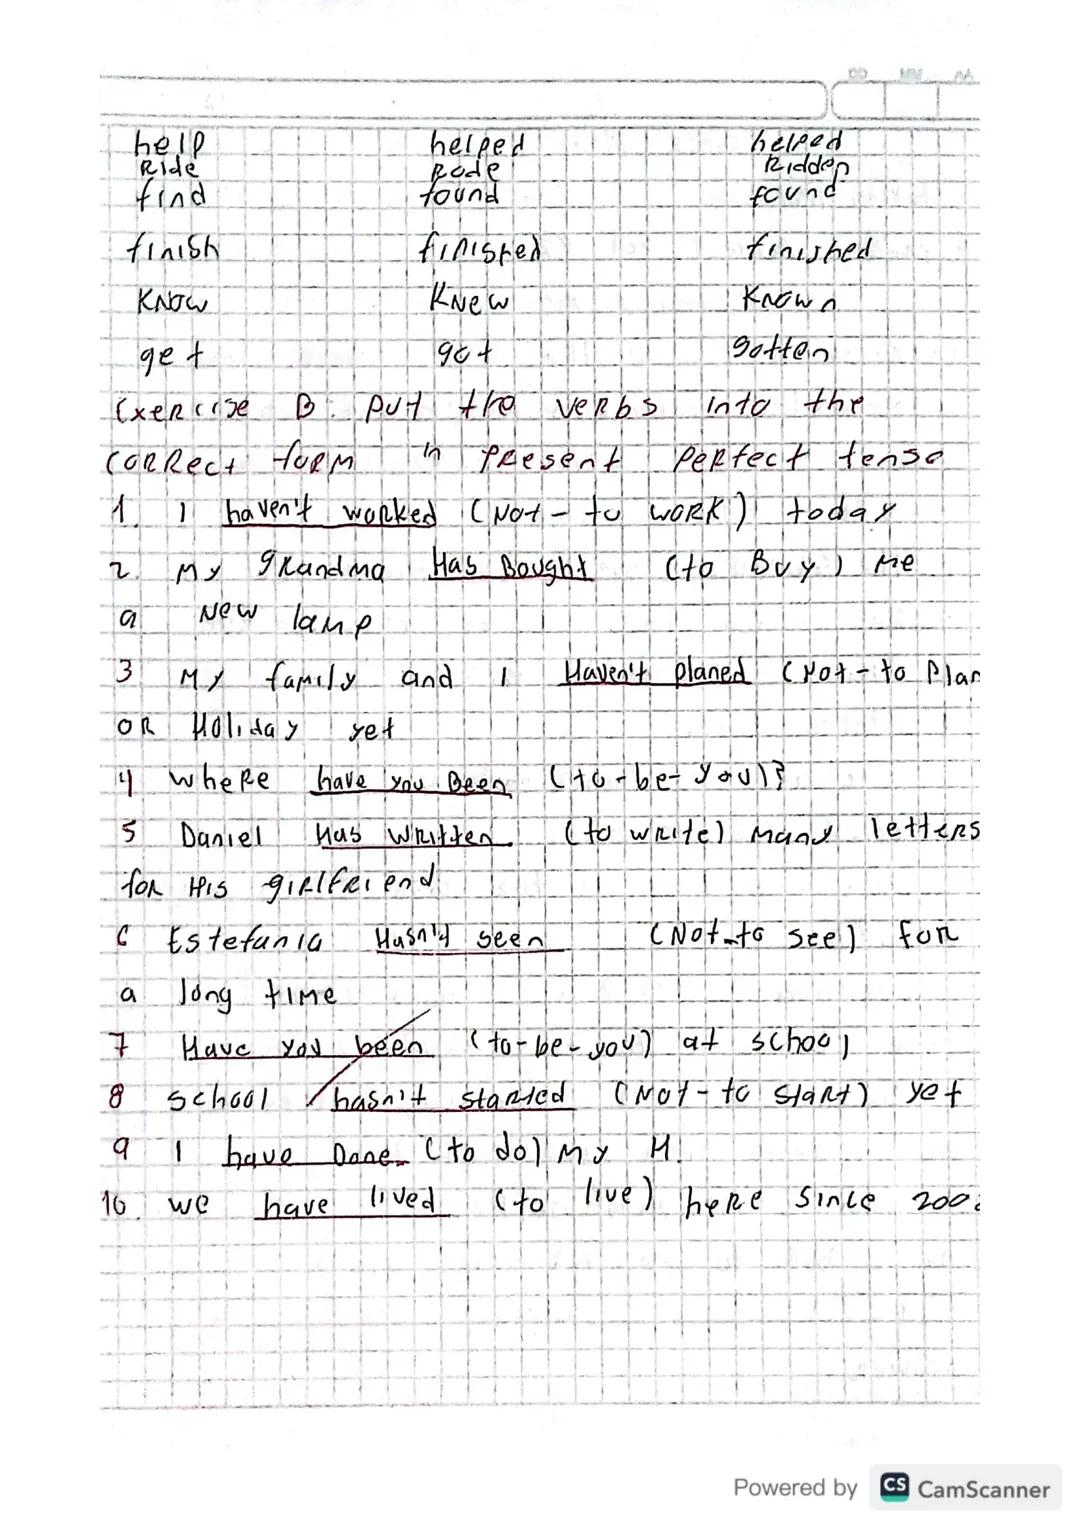 DD MM AA
help helped helped
Ride Rode Ridden
find found found
finish finished finished
Know Knew Known
get got gotten
Exercise B. put the verbs into the
correct form in present perfect tense
1. I haven't worked (Not - to work) today
2. My grandma Has Bought (to Buy) me
a New lamp
3 My family and I Haven't planed (Not - to Plan
OR Holiday yet
4 where have you Been (to - be - you)?
5 Daniel Has written. (to write) many letters
for His girlfriend
6 Estefania Hasn't seen (Not - to see) for
a long time
7 Have you been (to - be - you) at school
8 school hasn't started (Not - to start) yet
9 I have Done (to do) My H.
10. we have lived (to live) here since
Powered by CS CamScanner